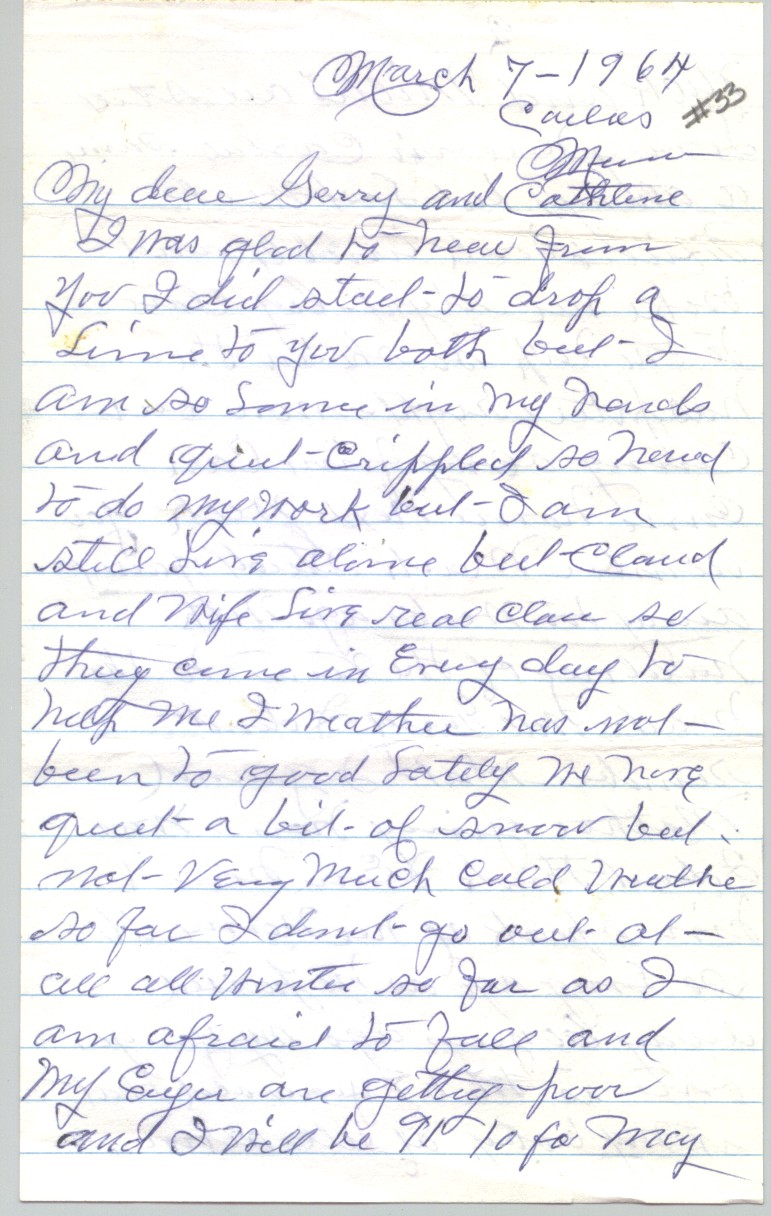 March 7-1964
#33
Carlos
Minn
My dear Gerry and Cathline
I was glad to hear from
you I did start to drop a
Line to you both but I
am so Lame in my hands
and quit Crippled so hard
to do my work but I am
still Live alone but Claud
and Wife Live real close so
they come in Every day to
help me I weather has not
been to good Lately we have
quit a bit of snow but
not Very Much Cold Weathe
so far I dont go out at
all all Winter so far as I
am afraid to fall and
My Eyes are getting poor
and I Will be 91 10 of May